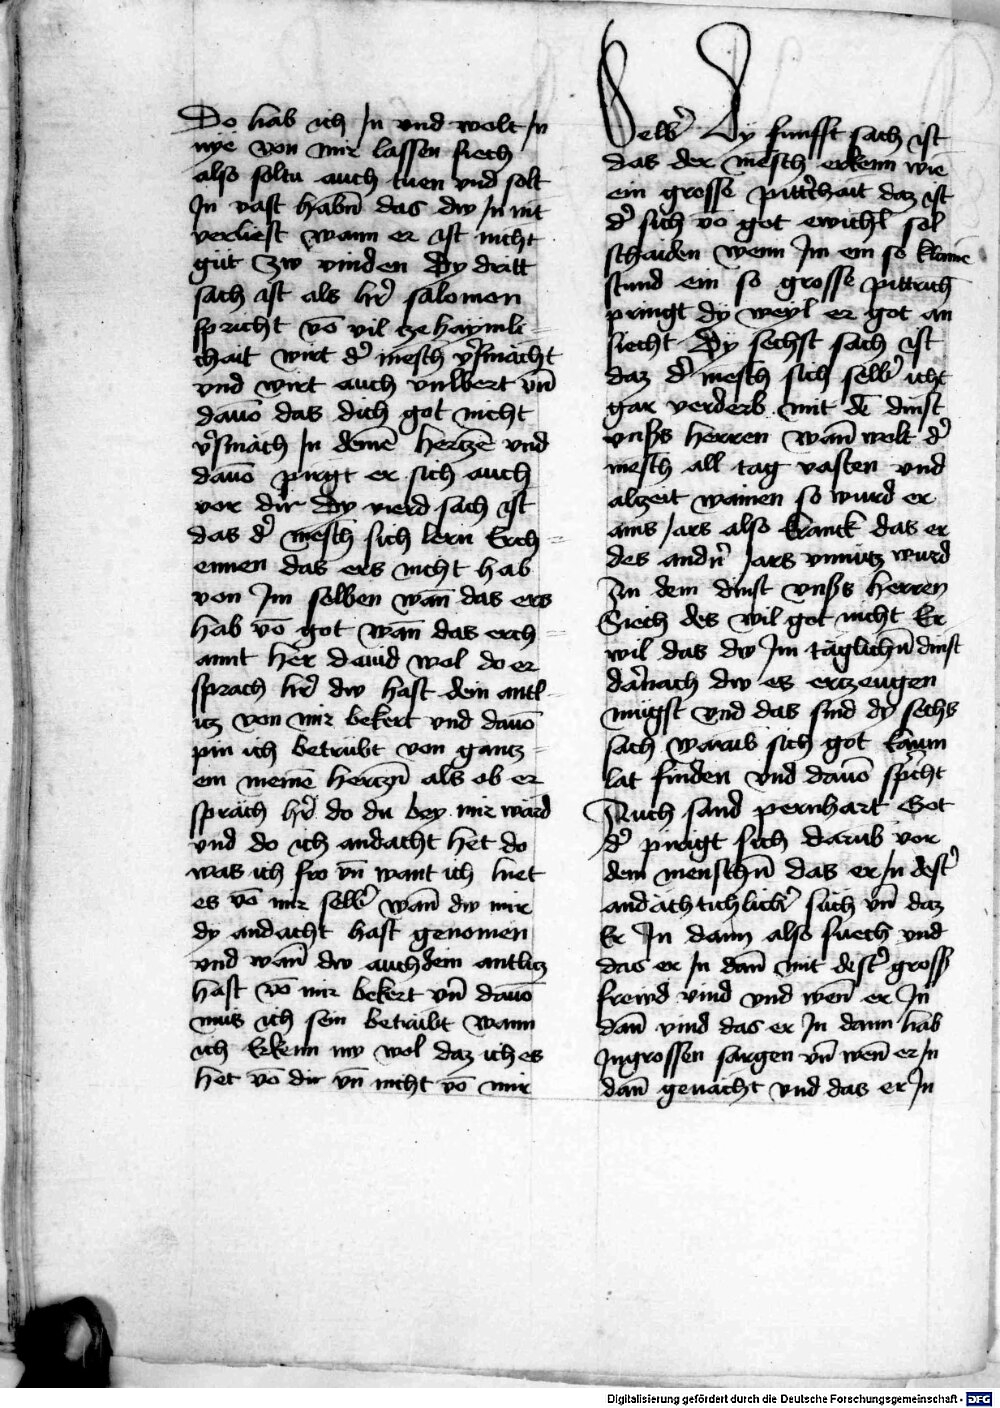 Do hab ich Jn vnd wolt Jn
nye von mir lassen siech
also soltu auch tuen vnd solt
Jn vast habn̄ das dw Jn nit
verliest wann er ist nicht
güt zw vinden Dy dritt
sach ist als hr̄ salomon
spricht vō vil ze haymli=
chait wirt dˀ mēsch vˀsmächt
vnd wirt auch vnwert vn̄
dauō das dich got nicht
vˀsmäch Jn deinē hertzē vnd
dauō pirgt er sich auch
vor dir Dy vierd sach ist
das dˀ mēsch sich lern Erch=
ennen das ers nicht hab
von Jm selben wan̄ das ers
hab vō got wan̄ das erch=
annt her dauid wol do er
sprach hr̄ dw hast dein antl=
itz von mir bekert vnd dauō
pin ich betrübt von gantz=
em meinē hertzn̄ als ob er
sprach hr̄ do du bey mir ward
vnd do ich andacht het do
was ich fro vn̄ want ich hiet
es vō mir selbˀ wan̄ dw mir
dy andacht hast genomen
vnd wan̄ dw auch dein antlitz
hast vō mir bekert vn̄ dauō
mus ich sein betrübt wann
ich Erkenn nw wol daz ich es
het vō dir vn̄ nicht vō mir
selbˀ Dy funfft sach ist
das der mēsch erkenn wie
ein grosse pittˀchait daz ist
dˀ sich vō got ewichl sol
schaiden wenn Jm ein so klaine
stund ein so grosse pittrich
pringt dy weyl er got an
siecht Dy sechst sach ist
daz dˀ mēsch sich selbˀ icht
gar verderb mit dē dinst
vnsˀs herren wan̄ wolt dˀ
mēsch all tag vasten vnd
alzeit wainen so wurd er
ains Jars also kranck das er
des andˀn Jars vnnütz wurd
Jn dem dinst vnsˀs herren
Siech des wil got nicht Er
wil das dw Jm täglichn̄ dinst
darnach dw es erzeugen
mügst vnd das sind dy sechs
sach warub sich got kaum
lat finden vnd dauō spˀcht
Auch sand pernhart Got
dˀ pirigt sich darub vor
dem menschn̄ das er Jn destˀ
andächtichlichˀ süch vn̄ daz
Er Jn dann also suech vnd
das er Jn dan̄ mit destˀ grossˀ
frewd vind vnd wen̄ er Jn
dan̄ vind das er Jn dann hab
Jn grossen sargen vn̄ wen̄ er Jn
dan̄ geuächt vnd das er Jn
Digitalisierung gefördert durch die Deutsche Forschungsgemeinschaft - DFG